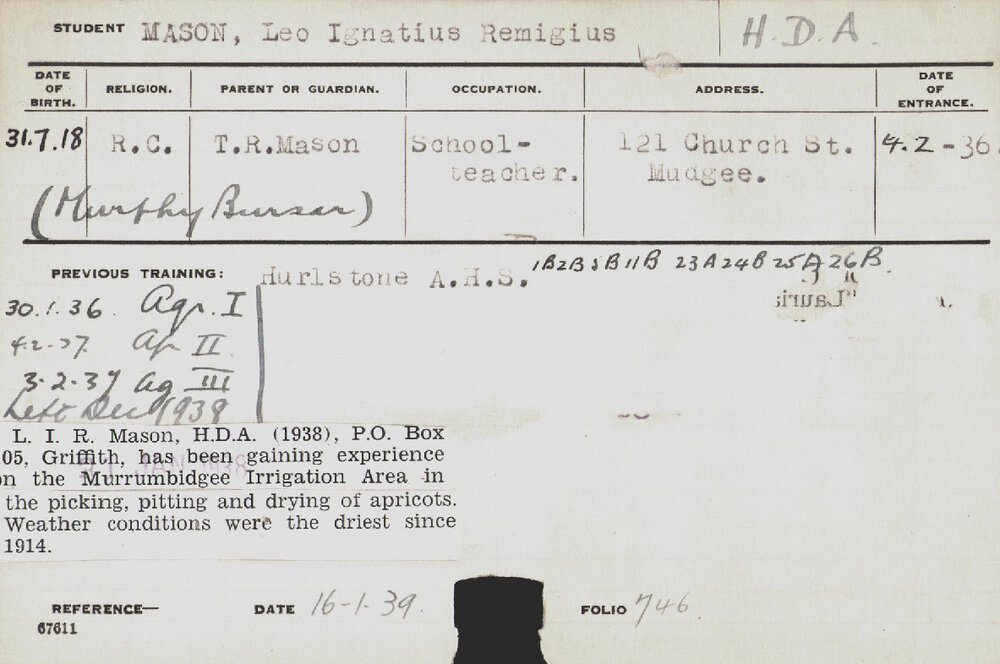 STUDENT MASON, Leo Ignatius Remigius H.D.A.
DATE OF BIRTH. RELIGION. PARENT OR GUARDIAN. OCCUPATION. ADDRESS. DATE OF ENTRANCE.
31.7.18 R.C. T.R.Mason School- 121 Church St. 4.2-36.
teacher. Mudgee.
(Murphy Bursar)
PREVIOUS TRAINING: Hurlstone A.H.S. 1B2B 11B 23A 24B 25A 26B.
30.1.36. Agr. I
4.2.37. II
3.2.37 Ag III
Left Dec 1938
L. I. R. Mason, H.D.A. (1938), P.O. Box
05, Griffith, has been gaining experience
on the Murrumbidgee Irrigation Area in
the picking, pitting and drying of apricots.
Weather conditions were the driest since
1914.
REFERENCE— DATE 16-1-39. FOLIO 746
67611